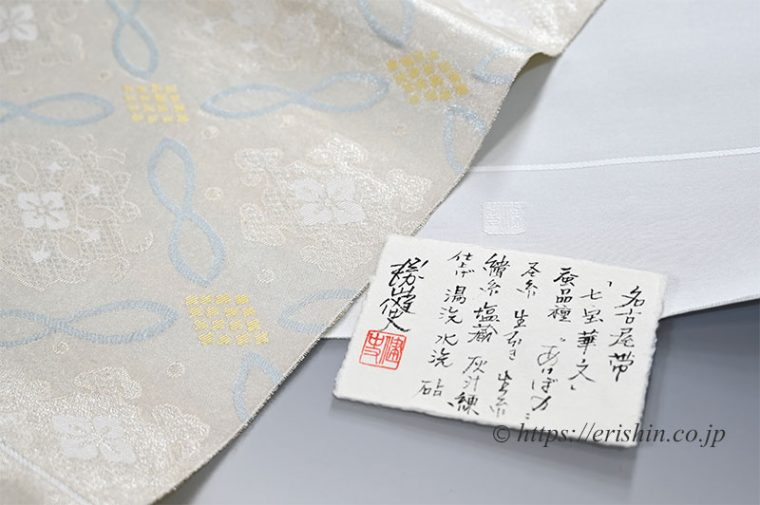 名古屋帯
「七星華文」
蚕品種 “あけぼの”
経糸 生引き 生糸
緯糸 塩蔵 灰汁練
仕上げ 湯洗 水洗 砧
勝山健史
© https://erishin.co.jp